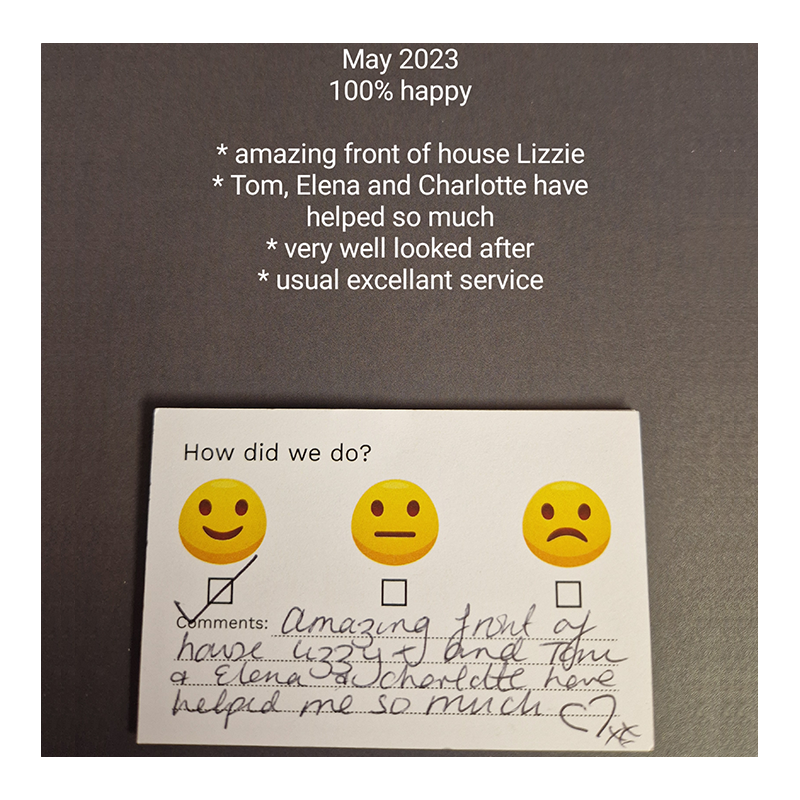 May 2023
100% happy
* amazing front of house Lizzie
* Tom, Elena and Charlotte have
helped so much
* very well looked after
* usual excellant service
How did we do?
Comments: Amazing front of
house Lizzy + and Tom
& Elena & Charlotte have
helped me so much